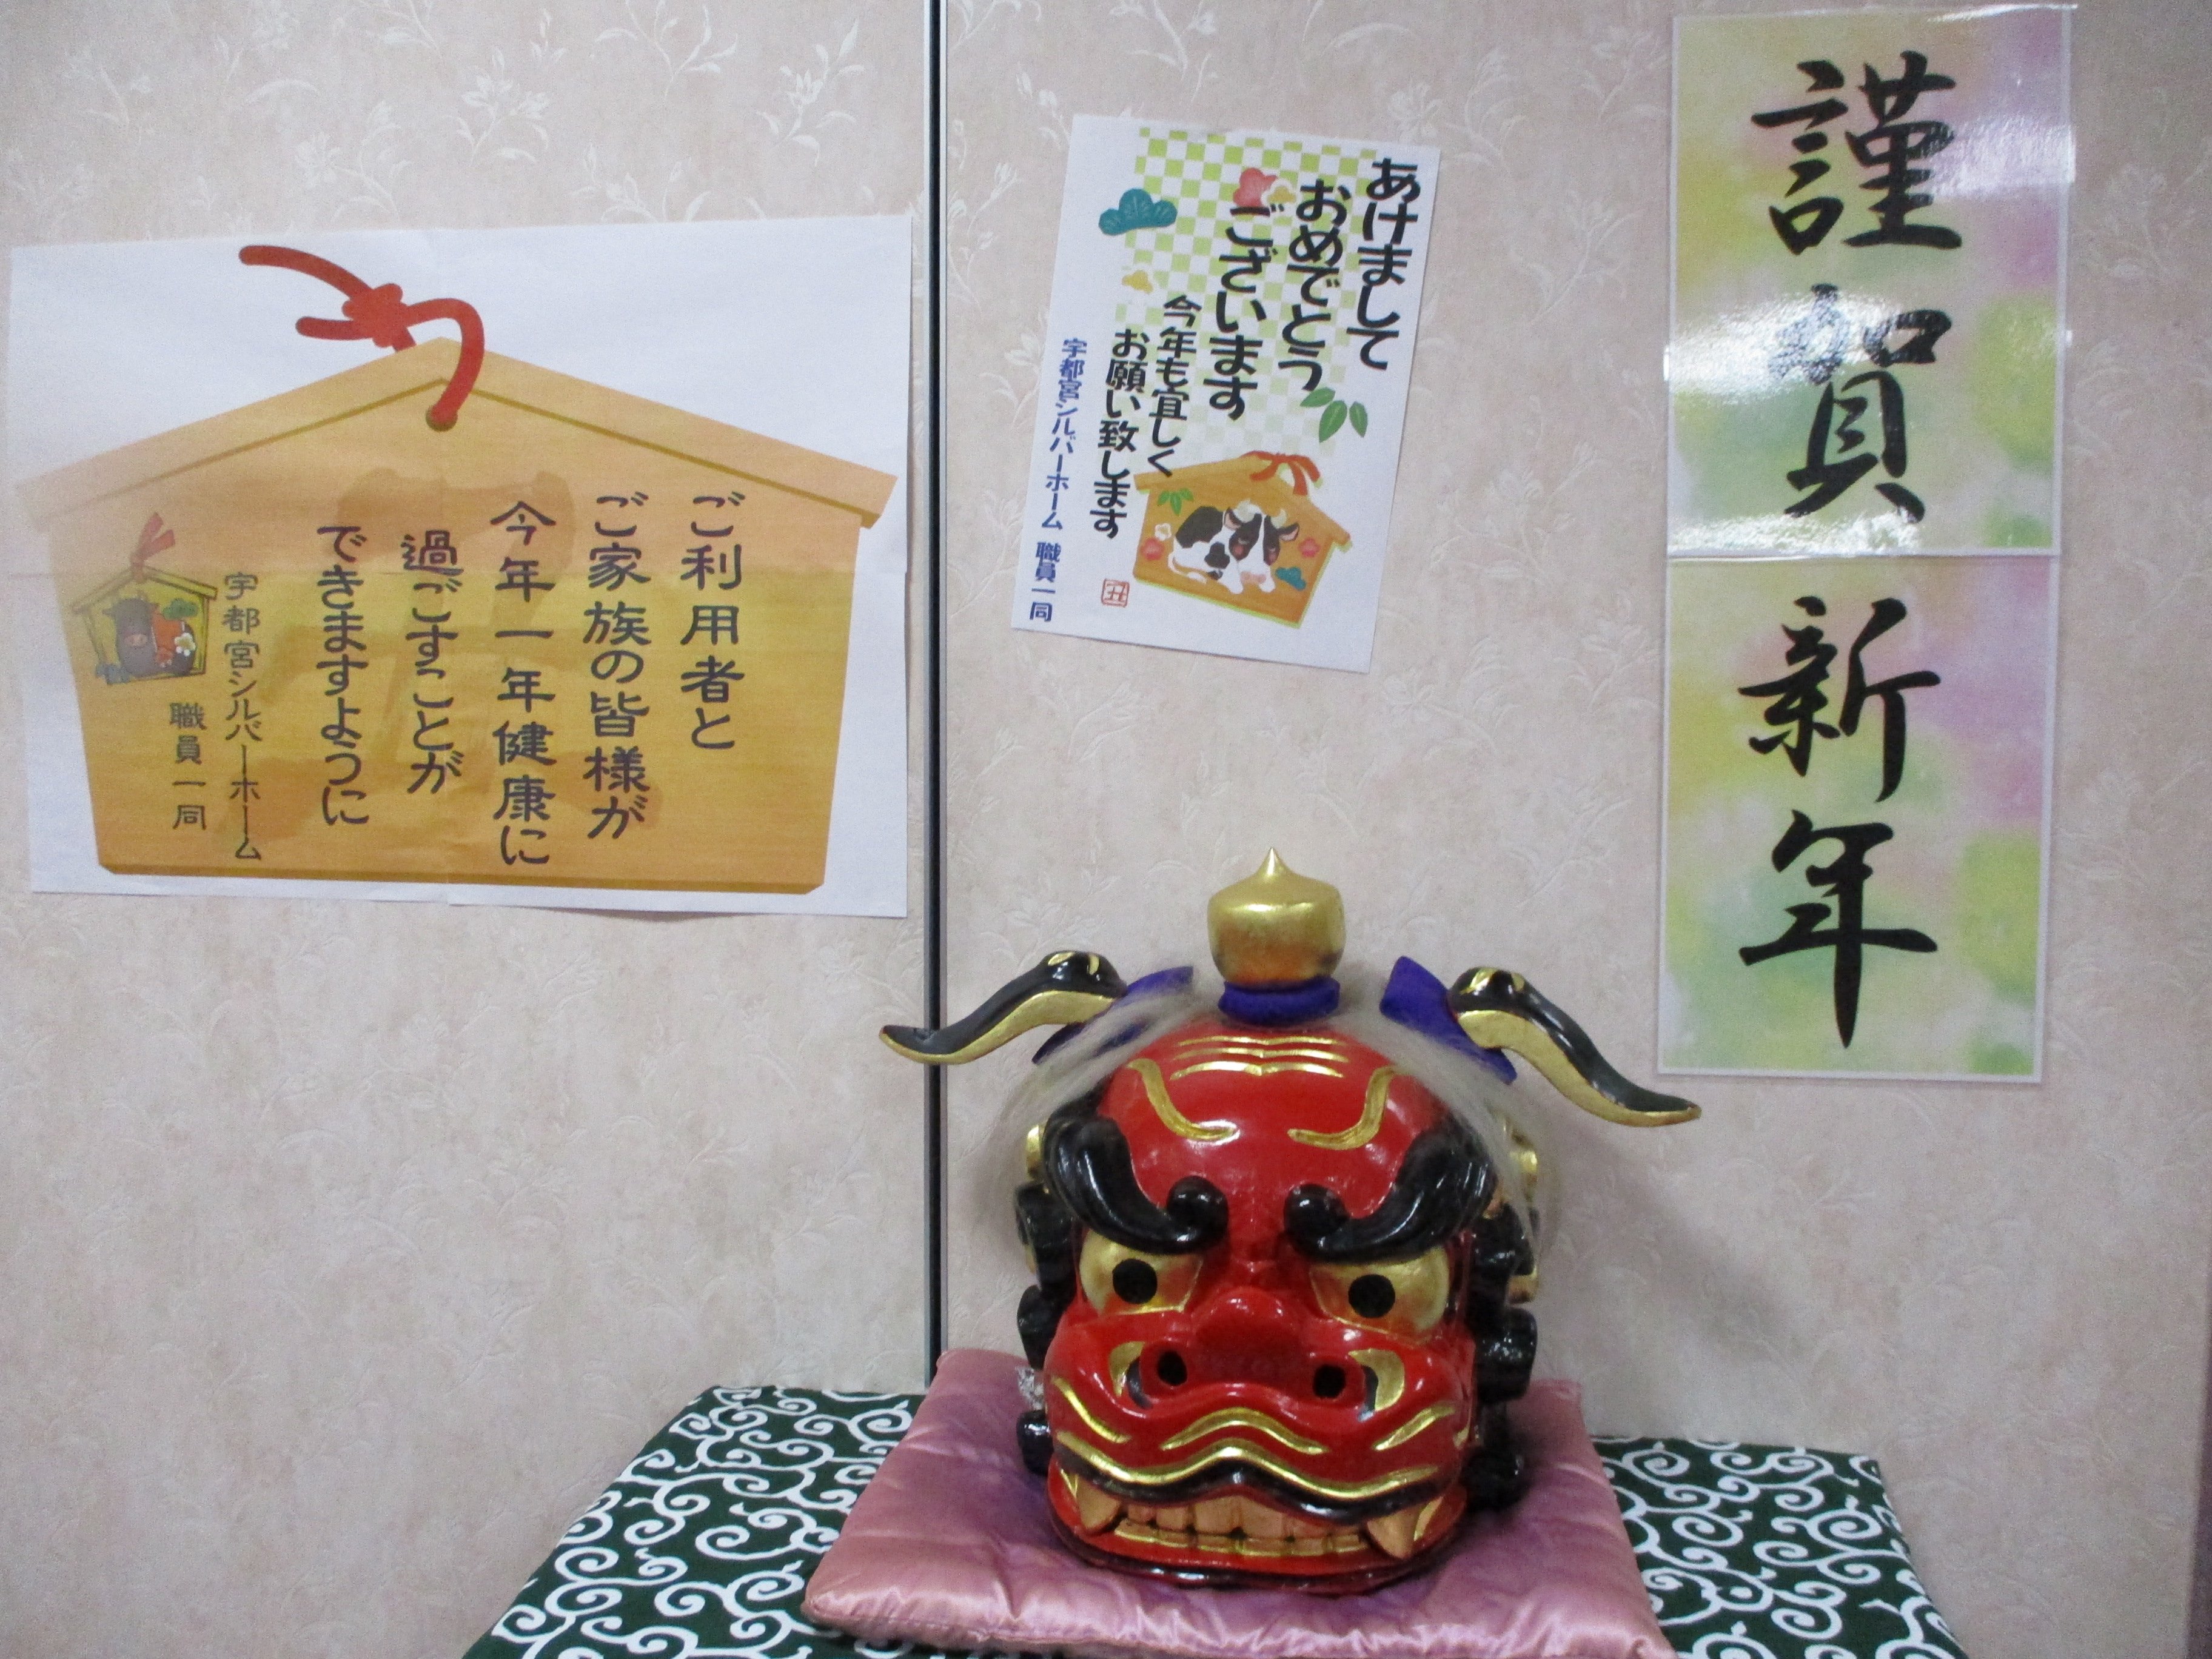 謹賀
新年
あけまして
おめでとう
ございます
今年も宜しく
お願い致します
宇都宮シルバーホーム 職員一同
丑
ご利用者と
ご家族の皆様が
今年一年健康に
過ごすことが
できますように
宇都宮シルバーホーム
職員一同